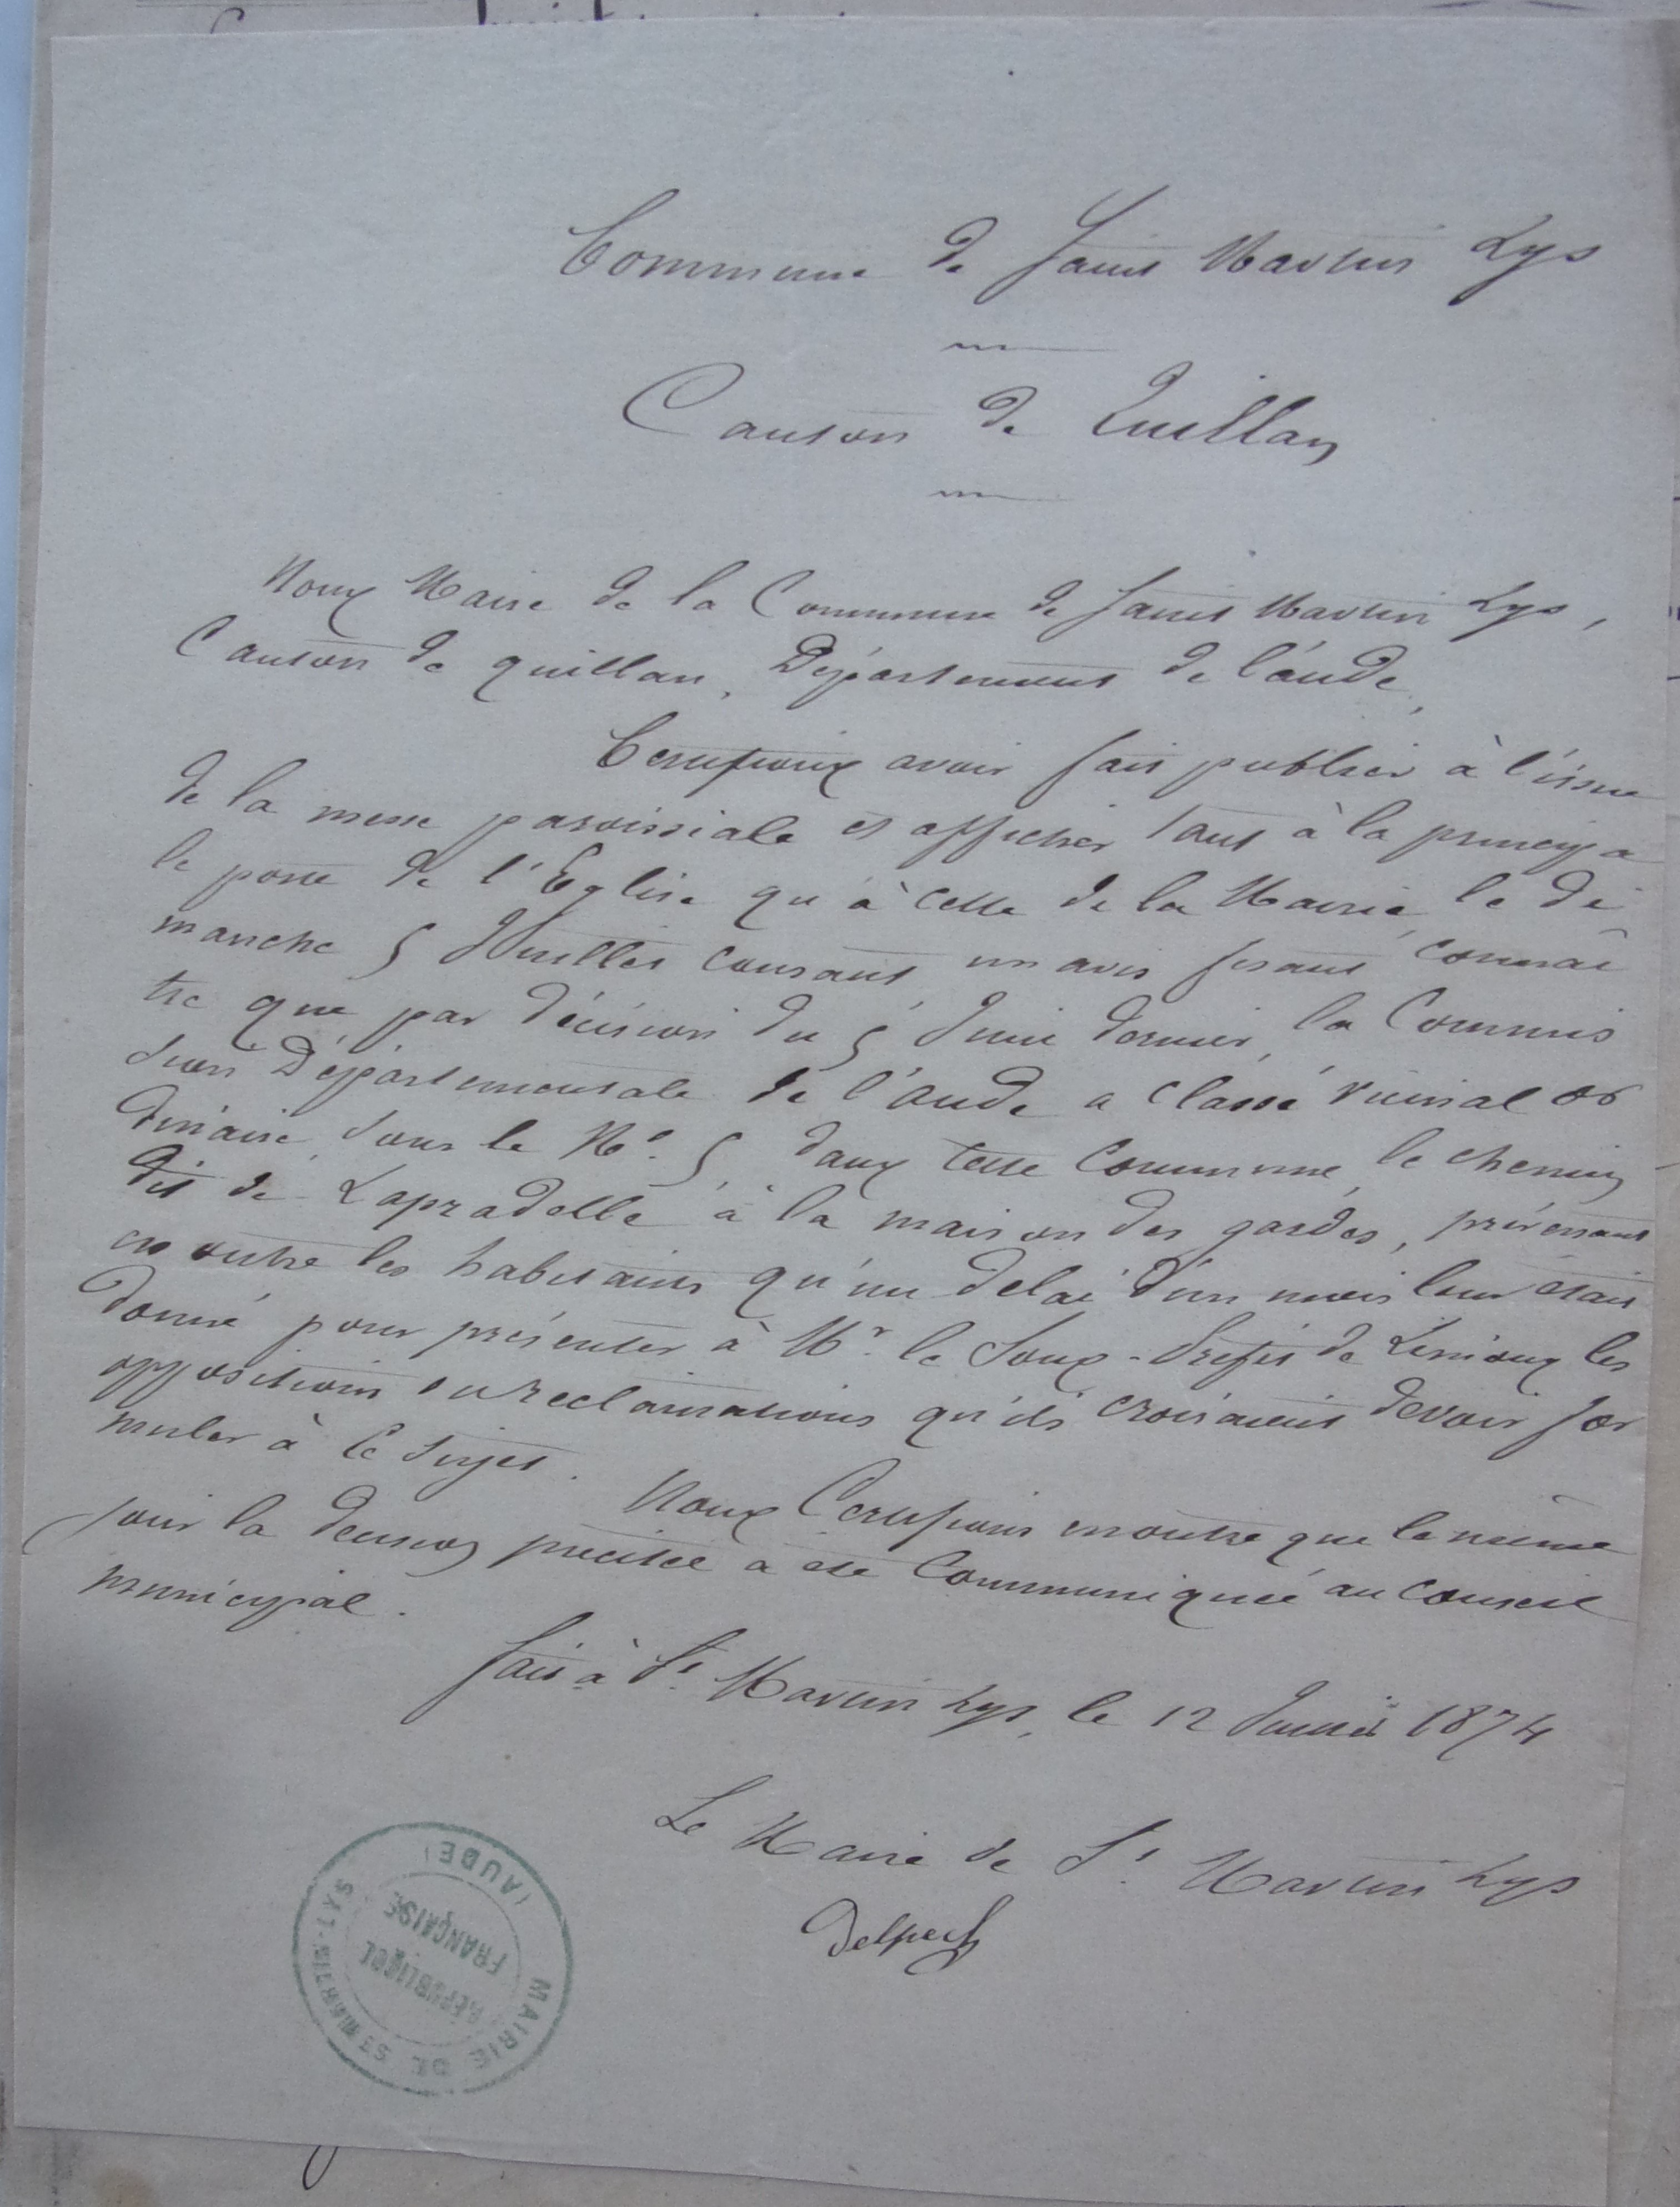 Commune de Saint Martin Lys
Canton de Quillan
Nous Maire de la Commune de Saint Martin Lys,
Canton de quillan, Département de l'aude,
Certifions avoir fait publier à l'issue
de la messe paroissiale et afficher tant à la principa
le porte de l'Eglise qu'à celle de la Mairie, le di
manche 5 Juillet courant un avis fesant connaî
tre que par décision du 5 Juin dernier, la Commis
sion Départementale de l'Aude a classé vicinal or
dinaire, sous le No. 5, dans cette commune, le chemin
dit de Lapradelle à la maison des gardes, prévenant
en outre les habitants qu'un délai d'un mois leur était
donné pour présenter à Mr. le Sous-Préfet de Limoux les
oppositions ou réclamations qu'ils croiraient devoir for
muler à ce sujet.
Nous Certifions en outre que le même
jour la décision précitée a été communiquée au conseil
municipal.
fait à St. Martin Lys, le 12 Juillet 1874
Le Maire de St. Martin Lys
Delpech
MAIRIE DE ST MARTIN-LYS
(AUDE)
RÉPUBLIQUE
FRANÇAISE